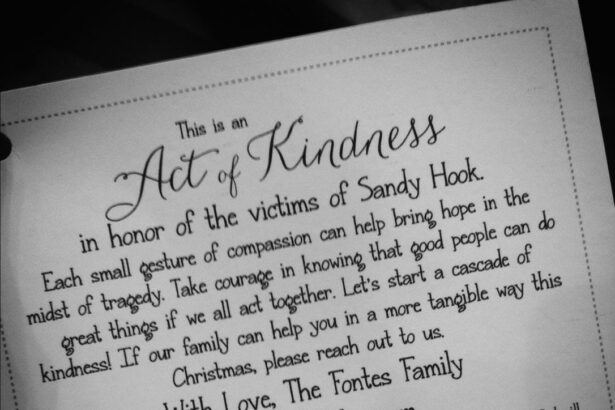 This is an
Act of Kindness
in honor of the victims of Sandy Hook.
Each small gesture of compassion can help bring hope in the
midst of tragedy. Take courage in knowing that good people can do
great things if we all act together. Let's start a cascade of
kindness! If our family can help you in a more tangible way this
Christmas, please reach out to us.
With Love, The Fontes Family